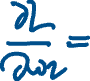 ∂L/∂w₂ =